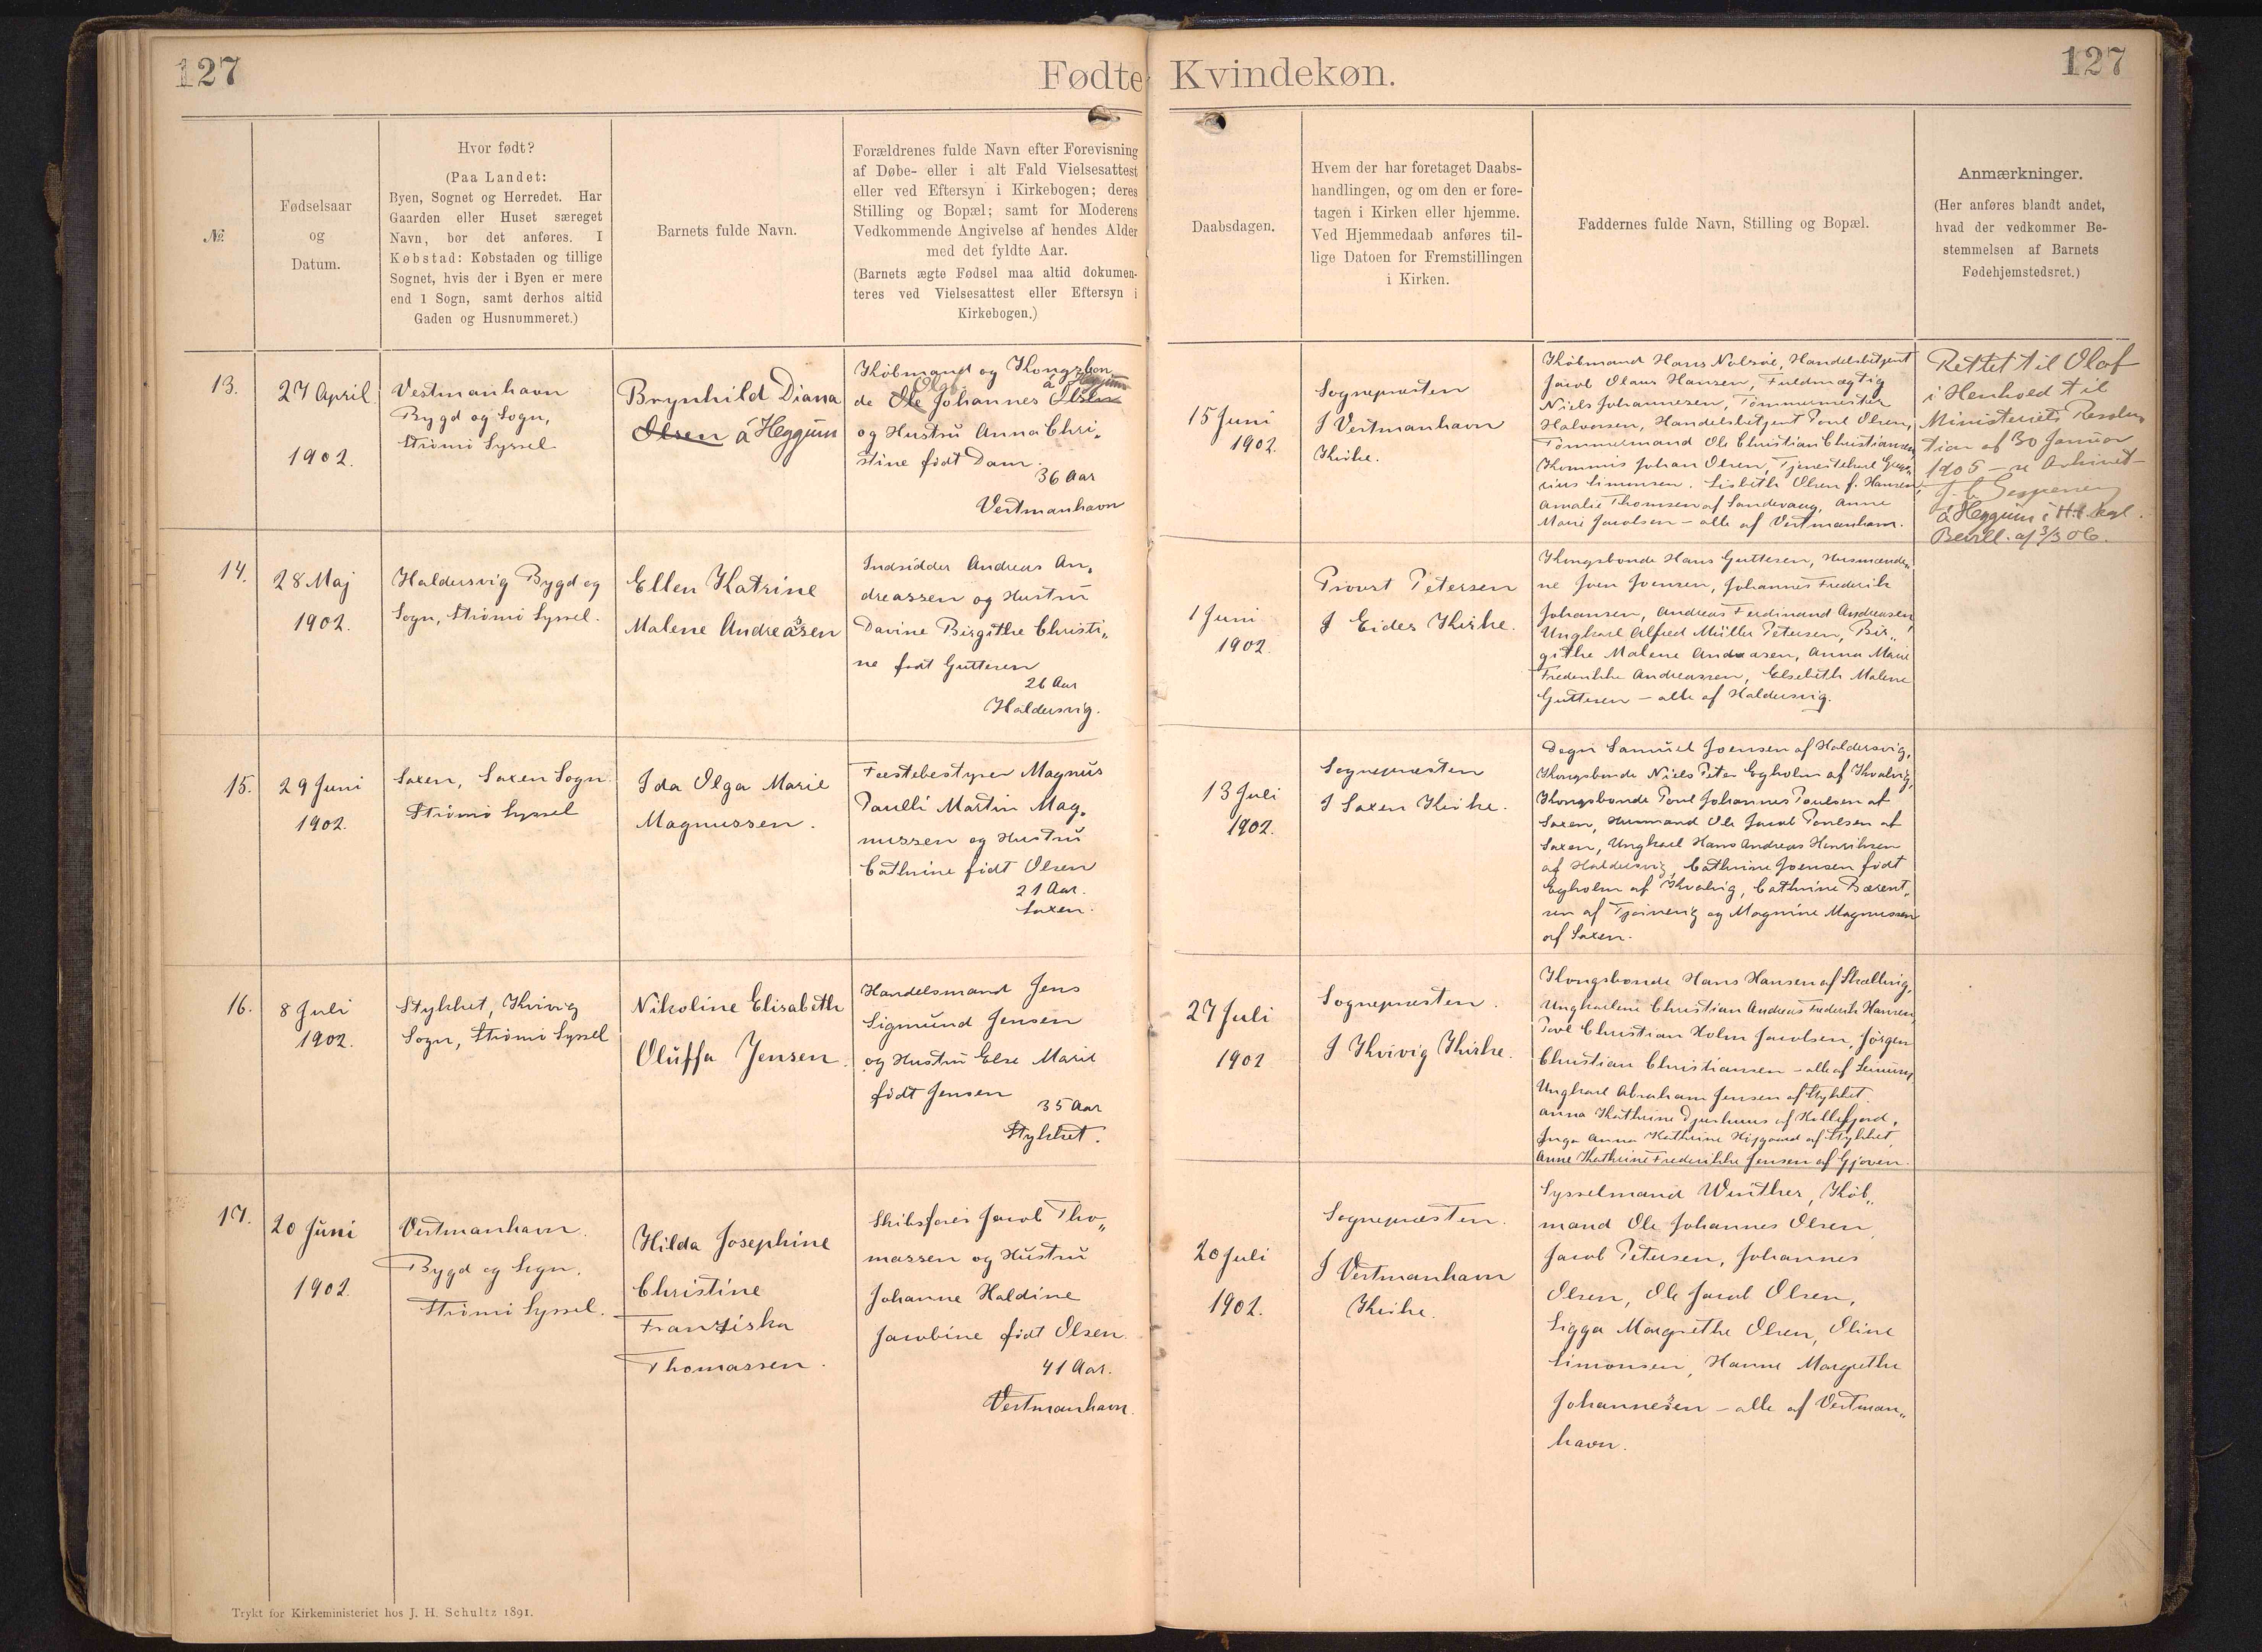 127
Fødte Kvindekøn.
127
№
Fødselsaar
og
Datum.
Hvor født?
(Paa Landet:
Byen, Sognet og Herredet. Har
Gaarden eller Huset særeget
Navn, bør det anføres. I
Købstad: Købstaden og tillige
Sognet, hvis der i Byen er mere
end 1 Sogn, samt derhos altid
Gaden og Husnummeret.)
Barnets fulde Navn.
Forældrenes fulde Navn efter Forevisning
af Døbe- eller i alt Fald Vielsesattest
eller ved Eftersyn i Kirkebogen; deres
Stilling og Bopæl; samt for Moderens
Vedkommende Angivelse af hendes Alder
med det fyldte Aar.
(Barnets ægte Fødsel maa altid dokumen-
teres ved Vielsesattest eller Eftersyn i
Kirkebogen.)
Daabsdagen.
Hvem der har foretaget Daabs-
handlingen, og om den er fore-
tagen i Kirken eller hjemme.
Ved Hjemmedaab anføres til-
lige Datoen for Fremstillingen
i Kirken.
Faddernes fulde Navn, Stilling og Bopæl.
Anmærkninger.
(Her anføres blandt andet,
hvad der vedkommer Be-
stemmelsen af Barnets
Fødehjemstedsret.)
13.
27 April
1902.
Vestmanhavn
Bygd og Sogn,
Strömö Syssel
Brynhild Diana
Olsen á Heygum
Købmand og Kongsbon
Olaf á Heygum
de Ole Johannes Olsen
og Hustru Anna Chri„
stine født Dam.
36 Aar
Vestmanhavn
15 Juni
1902.
Sognepræsten
I Vestmanhavn
Kirke.
Købmand Hans Nolsöe, Handelsbetjent
Jacob Olaus Hansen, Fuldmægtig
Niels Johannesen, Tömmermester
Halvorsen, Handelsbetjent Poul Olsen,
Tömmermand Ole Christian Christiansen
Kommis Johan Olsen, Tjenestekarl Grego„
rius Simonsen. Lisbeth Olsen f. Hansen,
Amalie Thomsen af Sandevaag, Anne
Marie Jacobsen – alle af Vestmanhavn.
Rettet til Olaf
i Henhold til
Ministeriets Resolu
tion af 30 Januar
1905 – se Arkivet –
á Heygum i H.t. kgl.
Bevill. af 3/3 06.
14.
28 Maj
1902.
Haldersvig Bygd og
Sogn, Strömö Syssel.
Ellen Katrine
Malene Andreasen
Indsidder Andreas An„
dreassen og Hustru
Davine Birgithe Christi„
ne født Guttesen
26 Aar
Haldersvig.
1 Juni
1902.
Provst Petersen
I Eides Kirke.
Kongsbonde Hans Guttesen, Husmænde„
ne Joen Joensen, Johannes Frederik
Johansen, Andreas Ferdinand Andreasen,
Ungkarl Alfred Müller Petersen, Bir„
githe Malene Andreasen, Anna Marie
Frederikke Andreassen, Elsebeth Malene
Guttesen – alle af Haldersvig.
15.
29 Juni
1902.
Saxen, Saxen Sogn.
Strömö Syssel
Ida Olga Marie
Magnussen.
Fæstebestyrer Magnus
Paulli Martin Mag„
nussen og Hustru
Cathrine født Olsen
21 Aar.
Saxen.
13 Juli
1902.
Sognepræsten
I Saxen Kirke.
Degn Samuel Joensen af Haldersvig,
Kongsbonde Niels Peter Egholm af Kvalvig,
Kongsbonde Poul Johannes Poulsen af
Saxen, Husmand Ole Jacob Poulsen af
Saxen, Ungkarl Hans Andreas Henriksen
af Haldersvig, Cathrine Joensen født
Egholm af Kvalvig, Cathrine Bærent„
sen af Tjörnevig og Magnine Magnussen
af Saxen.
16.
8 Juli
1902.
Stykket, Kvivig
Sogn, Strömö Syssel
Nikoline Elisabeth
Oluffa Jensen.
Handelsmand Jens
Sigmund Jensen
og Hustru Else Marie
født Jensen
35 Aar
Stykket.
27 Juli
1902
Sognepræsten.
I Kvivig Kirke.
Kongsbonde Hans Hansen af Skælling,
Ungkarlene Christian Andreas Frederik Hansen,
Poul Christian Holm Jacobsen, Jörgen
Christian Christiansen – alle af Leinum,
Ungkarl Abraham Jensen af Stykket.
Anna Kathrine Djurhuus af Kollefjord,
Inga Anna Kathrine Højgaard af Stykket,
Anne Kathrine Frederikke Jensen af Gjoven.
17.
20 Juni
1902.
Vestmanhavn.
Bygd og Sogn.
Strömö Syssel.
Hilda Josephine
Christine
Franziska
Thomassen.
Skibsfører Jacob Tho„
massen og Hustru
Johanne Haldine
Jacobine født Olsen.
41 Aar.
Vestmanhavn.
20 Juli
1902.
Sognepræsten.
I Vestmanhavn
Kirke.
Sysselmand Winther, Köb„
mand Ole Johannes Olsen,
Jacob Petersen, Johannes
Olsen, Ole Jacob Olsen,
Sigga Margrethe Olsen, Oline
Simonsen, Hanne Margrethe
Johannesen – alle af Vestman„
havn.
Trykt for Kirkeministeriet hos J. H. Schultz 1891.